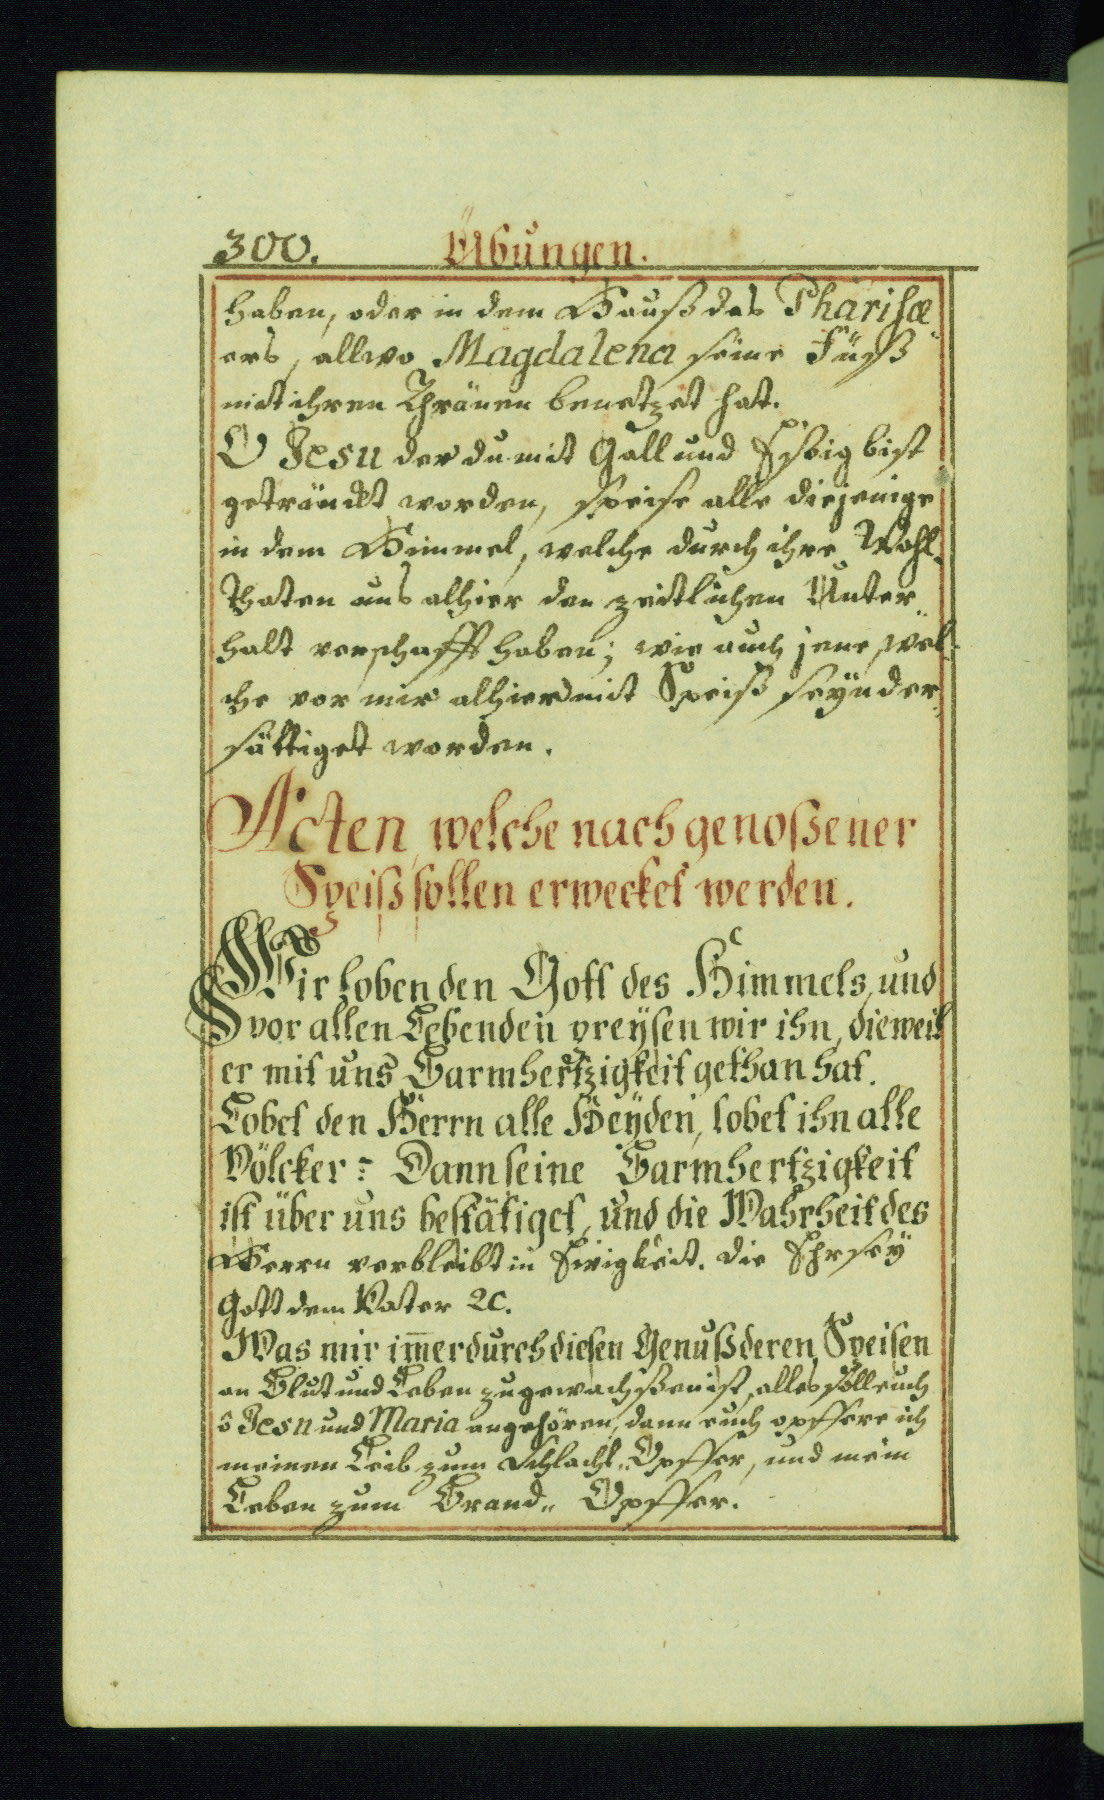 300. Übungen.
haben, oder in dem Hauß des Pharisæ-
ers, allwo Magdalena seine Füeß
mit ihren Thränen benetzet hat.
O Jesu der du mit Gall und Eßig bist
getränckt worden, speise alle diejenige
in dem Himmel, welche durch ihre Wohl-
thaten uns alhier den zeitlichen Unter-
halt verschafft haben; wie auch jene, wel-
che vor mir alhier mit Speiß seÿnd er-
sättiget worden.
Acten, welche nach genoßener
Speiß sollen erwecket werden.
Wir loben den Gott des Himmels, und
vor allen Lebenden preÿsen wir ihn, dieweil
er mit uns Barmhertzigkeit gethan hat.
Lobet den Herrn alle Heÿden, lobet ihn alle
Völcker: Dann seine Barmhertzigkeit
ist über uns bestätiget, und die Wahrheit des
Herrn verbleibt in Ewigkeit. Die Ehr seÿ
Gott dem Vater 2c.
Was mir im̄er durch diesen Genuß deren Speisen
an Blut und Leben zugewachßen ist, alles soll euch
ô Jesu und Maria angehören, dann euch opffere ich
meinen Leib zum Schlacht-Opffer, und mein
Leben zum Brand- Opffer.